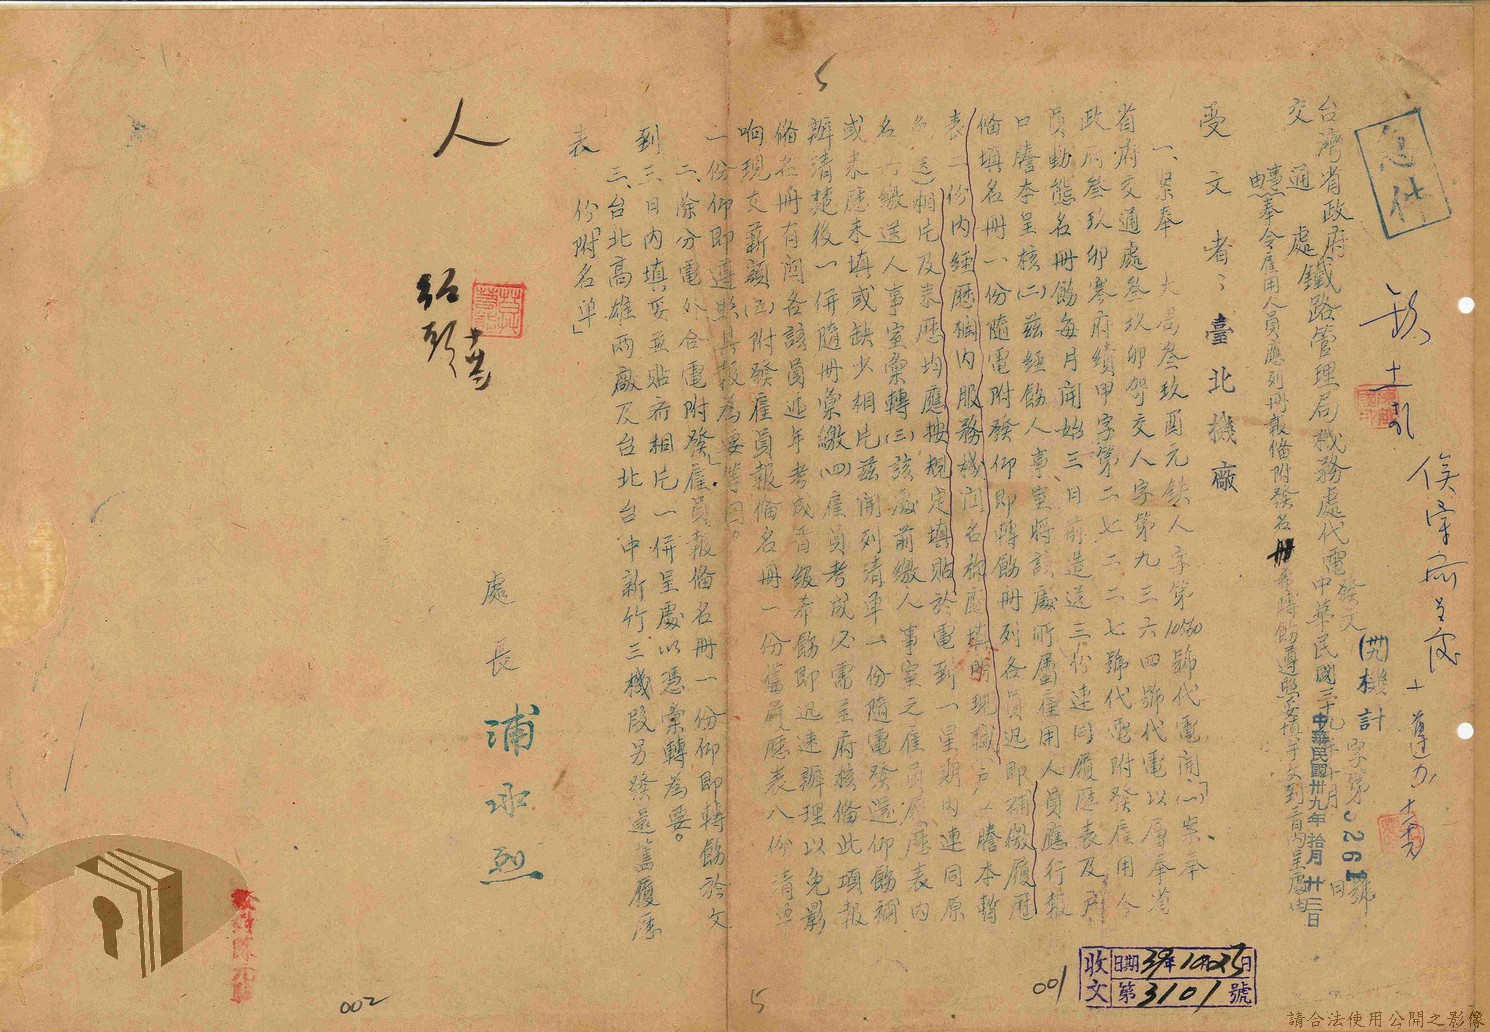 急件
台灣省政府
交通處鐵路管理局機務處代電
發元
中華民國三十九年十月 日
(卅九)機計字第3261號
中華民國卅九年拾月廿三日
事由:奉令雇用人員應列冊報備附發名冊希轉飭遵照妥填于文到三日內呈處由
受文者:臺北機廠
一、案奉 大局叁玖酉元鉄人字第10530號代電開「(一)案奉
省府交通處叁玖卯賀交人字第九三六四號代電以層奉省
政府叁玖卯寒府績甲字第二七二二七號代電附發雇用人
員動態名冊飭每月開始三日前造送三份連同履歷表及戶
口謄本呈核(二)茲經飭人事室將該處所屬雇用人員應行報
備填名冊一份隨電附發仰即轉飭冊列各員迅即補繳履歷
表二份內經歷欄內服務機関名称應填明現職戶口謄本暫
免送)相片及表歷均應按規定填貼於電到一星期內連同原
名冊繳送人事室彙轉(三)該處前繳人事室之雇員履歷表內
或表歷未填或缺少相片茲開列清單一份隨電發還仰飭補
辦清楚後一併隨冊彙繳(四)雇員考成必需呈府核備此項報
備名冊有関各該員近年考成晋級希飭即迅速辦理以免影
响現支薪額(五)附發雇員報備名冊一份舊履歷表八份清單
一份仰即遵照具報為要」等因。
二、除分電外合電附發雇員報備名冊一份仰即轉飭於文
到三日內填妥並貼齊相片一併呈處以憑彙轉為要。
三、台北高雄兩廠及台北台中新竹三機段另發還舊履歷
表 份「附名單」
處長 浦承烈
人
收文
日期39年10月25日
第3101號
001
002
5
5
請合法使用公開之影像